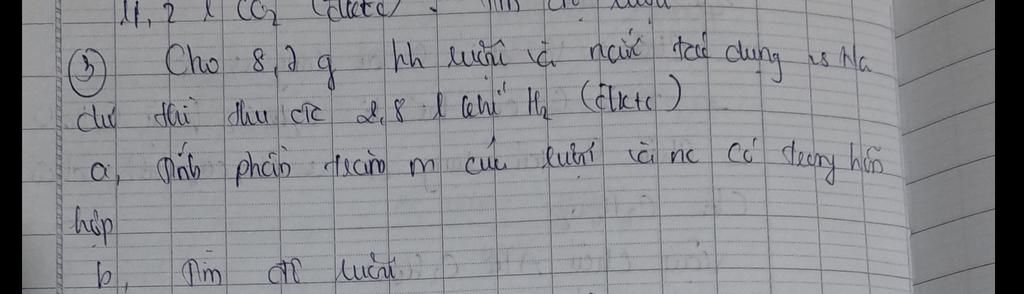 11,2 l CO2 (đktc).
③ Cho 8,2 g hh rượu và nước tác dụng vs Na
dư thì thu đc 2,8 l khí H2 (đktc)
a, Tính phần trăm m của rượu và nc có trong hỗn
hợp
b, Tìm đr rượu